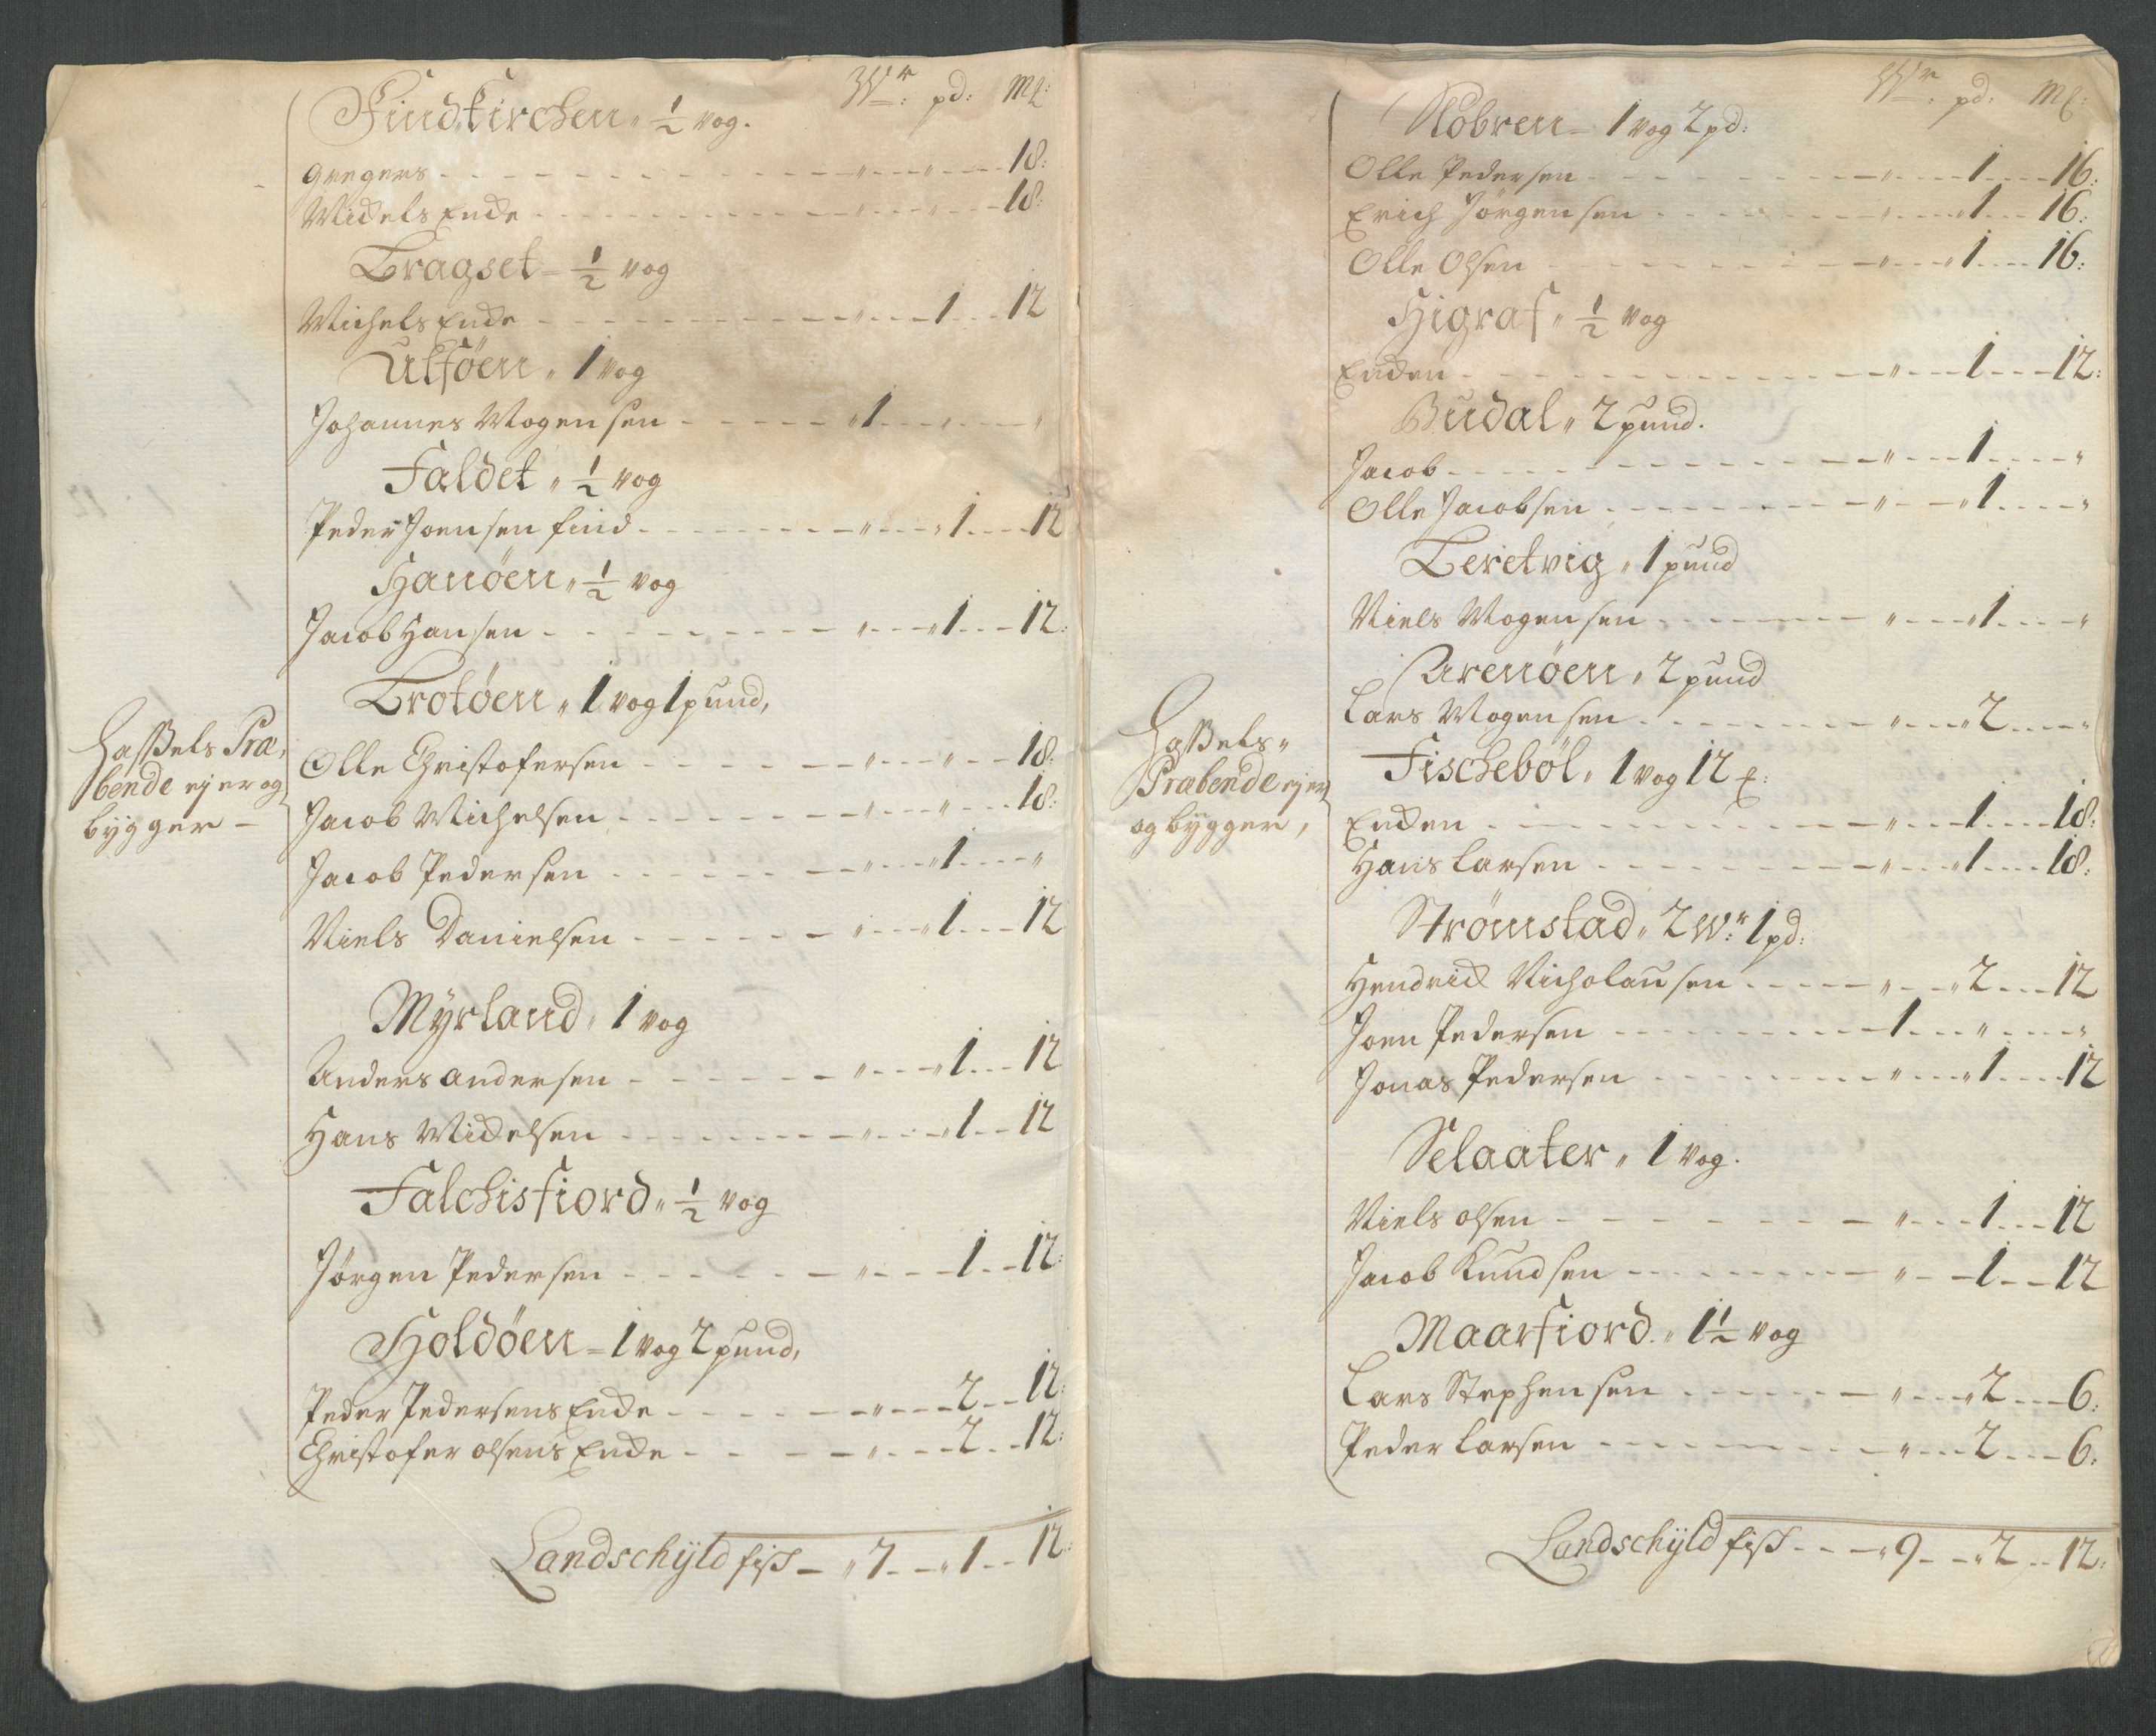 Wr: pd: Mk:
Findkirchen „ 1/2 vog.
Gregers - - - „ - - „ - - 18:
Mickels Enke - - - „ - - „ - - 18:
Tragset = 1/2 vog
Michels Enke - - - „ - - 1 - - 12
Ulføen „ 1 vog
Johannes Mogensen - - - „ 1 - - „ - - „
Faldet „ 1/2 vog
Peder Joensen find - - - „ - - „ 1 - - 12
Hanöen „ 1/2 vog
Jacob Hansen - - - „ - - „ 1 - - 12:
Trotöen „ 1 vog 1 pund,
Hassels Præ,
bende ejer og
bygger -
Olle Christofersen - - - „ - - „ - - 18:
Jacob Michelsen - - - „ - - „ - - 18:
Jacob Pedersen - - - „ - - „ 1 - - „
Niels Danielsen - - - „ - - „ 1 - - 12
Mÿrland „ 1 vog
Anders Andersen - - - „ - - „ 1 - - 12
Hans Mickelsen - - - „ - - „ 1 - - 12
Falchisfiord „ 1/2 vog
Jörgen Pedersen - - - „ - - 1 - - 12:
Holdöen = 1 vog 2 pund,
Peder Pedersens Enke - - - „ - - 2 - - 12:
Christofer olsens Enke - - - „ - - 2 - - 12:
Landschÿld fisk - „ 7 - - „ 1 - - 12:
Wr: pd: Mk:
Nobren = 1 vog 2 pd:
Olle Pedersen - - - „ - - 1 - - 16:
Erich Jörgensen - - - „ - - „ 1 - - 16:
Olle Olsen - - - „ - - „ 1 - - 16:
Higraf „ 1/2 vog
Enken - - - „ - - 1 - - 12:
Budal „ 2 pund.
Jacob - - - „ - - 1 - - „
Olle Jacobsen - - - „ - - „ 1 - - „
Teretvig „ 1 pund
Niels Mogensen - - - „ - - „ 1 - - „
Arenöen „ 2 pund
Lars Mogensen - - - „ - - „ 2 - - „
Hassels „
Præbende ejer
og bygger,
Fischeböl „ 1 vog 12 :
Enken - - - „ - - 1 - - 18:
Hans Larsen - - - „ - - „ 1 - - 18:
Strömstad „ 2 Wr: 1 pd:
Hendrick Nicholausen - - - „ - - „ 2 - - 12
Joen Pedersen - - - 1 - - „ - - „
Jonas Pedersen - - - „ - - „ 1 - - 12
Selaater „ 1 vog.
Niels olsen - - - „ - - 1 - - 12
Jacob Knudsen - - - „ - - 1 - - 12
Maarfiord „ 1 1/2 vog
Lars Stephensen - - - „ - - „ 2 - - 6:
Peder Larsen - - - „ - - 2 - - 6:
Landschÿld fisk - - - „ 9 - - „ 2 - - 12: